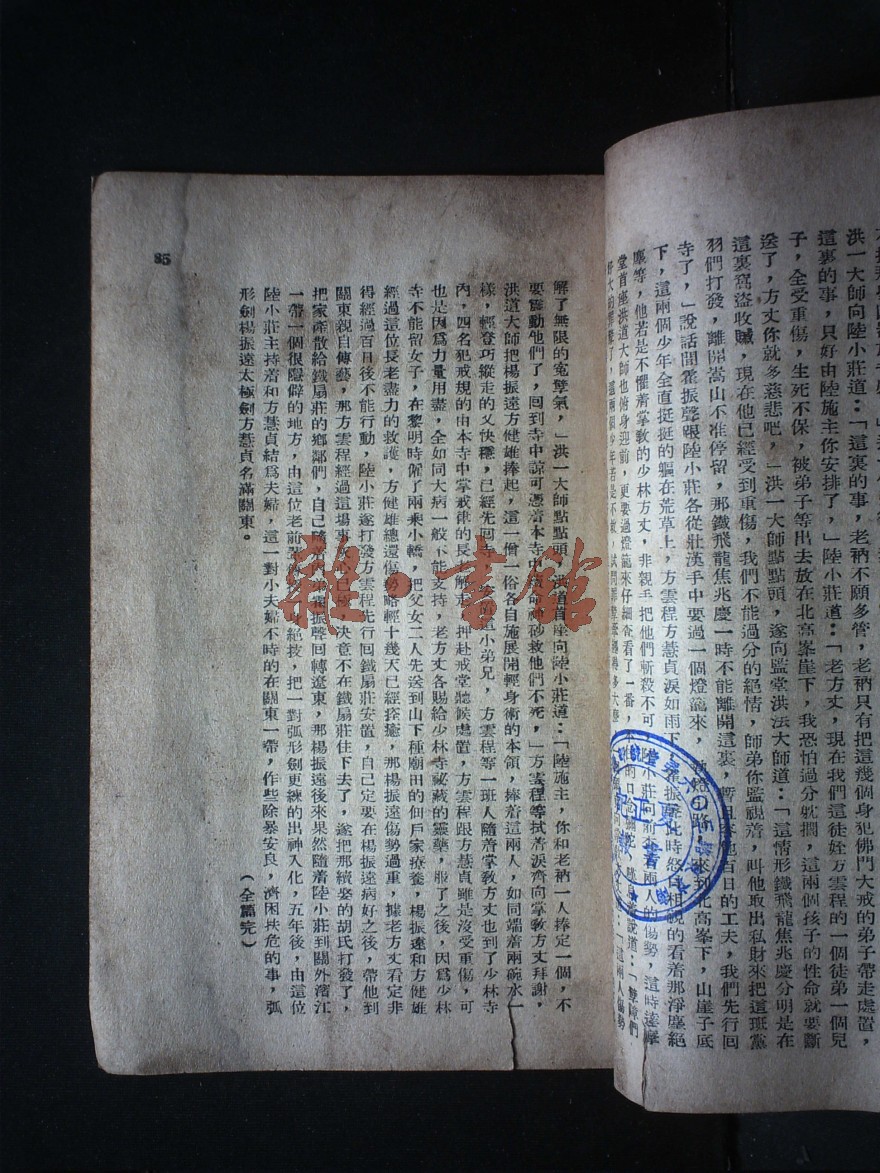 洪一大師向陸小莊道：「這裏的事，老衲不願多管，老衲只有把這幾個身犯佛門大戒的弟子帶走處置，
這裏的事，只好由陸施主你安排了，」陸小莊道：「老方丈，現在我們這徒姪方雲程的一個徒弟一個兒
子，全受重傷，生死不保，被弟子等出去放在北高峯崖下，我恐怕過分躭擱，這兩個孩子的性命就要斷
送了，方丈你就多慈悲吧，」洪一大師點點頭，遂向監堂洪法大師道：「這情形鐵飛龍焦兆慶分明是在
這裏窩盜收贓，現在他已經受到重傷，我們不能過分的絕情，師弟你監視着，叫他取出私財來把這班黨
羽們打發，離開嵩山不准停留，那鐵飛龍焦兆慶一時不能離開這裏，暫且容他百日的工夫，我們先行回
寺了，」說話間霍振聲跟陸小莊各從壯漢手中要過一個燈籠來，來到北高峯下，山崖子底
下，這兩個少年全直挺挺的躺在荒草上，方雲程方慧貞淚如雨下，霍振聲此時怒目相視的看着那淨塵絕
塵等，他若是不懼着掌教的少林方丈，非親手把他們斬殺不可，陸小莊向前查兩人的傷勢，這時達摩
堂首座洪道大師也俯身迎前，更要過燈籠來仔細查看了一番，
解了無限的寃孽氣，」洪一大師點點頭，洪道首座向陸小莊道：「陸施主，你和老衲一人捧定一個，不
要震動他們了，回到寺中諒可憑着本寺中續命神砂救他們不死，」方雲程等拭着淚齊向掌教方丈拜謝，
洪道大師把楊振遠方健雄捧起，這一僧一俗各自施展開輕身術的本領，捧着這兩人，如同端着兩碗水一
樣，輕登巧縱走的又快穩，已經先回寺小弟兄，方雲程等一班人隨着掌教方丈也到了少林寺
內，四名犯戒規的由本寺中掌戒律的長老解走，押赴戒堂聽候處置，方雲程跟方慧貞雖是沒受重傷，可
也是因爲力量用盡，全如同大病一般不能支持，老方丈各賜給少林寺秘藏的靈藥，服了之後，因爲少林
寺不能留女子，在黎明時僱了兩乘小轎，把父女二人先送到山下種廟田的佃戶家療養，楊振遠和方健雄
經過這位長老盡力的救護，方健雄總還傷勢略輕十幾天已經痊癒，那楊振遠傷勢過重，據老方丈看定非
得經過百日後不能行動，陸小莊遂打發方雲程先行回鐵扇莊安置，自己定要在楊振遠病好之後，帶他到
關東親自傳藝，那方雲程經過這場事放心已極，決意不在鐵扇莊住下去了，遂把那續娶的胡氏打發了，
把家產散給鐵扇莊的鄉鄰們，自己隨着霍振聲回轉遼東，那楊振遠後來果然隨着陸小莊到關外濱江
一帶一個很隱僻的地方，由這位老前輩身絕技，把一對弧形劍更練的出神入化，五年後，由這位
陸小莊主持着和方慧貞結爲夫婦，這一對小夫婦不時的在關東一帶，作些除暴安良，濟困扶危的事，弧
形劍楊振遠太極劍方慧貞名滿關東。
（全篇完）
85
雜·書館